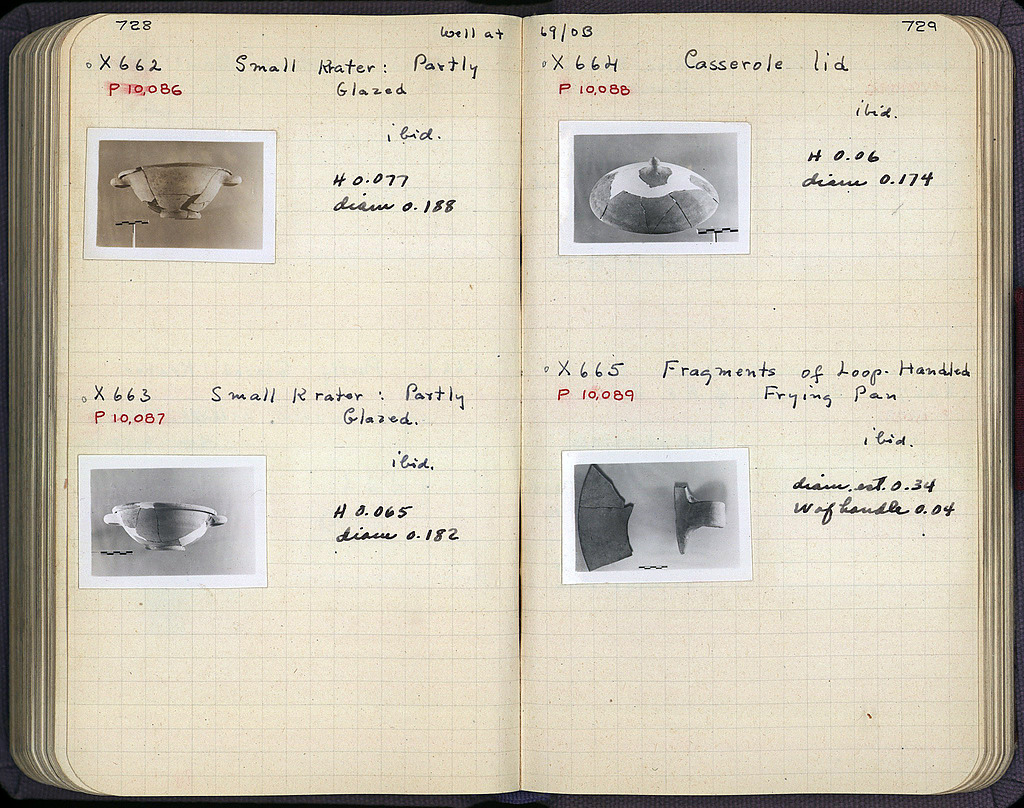 728
well at
X 662 Small Krater: Partly
P 10,086 Glazed
ibid.
H 0.077
diam 0.188
X 663 Small Krater: Partly
P 10,087 Glazed.
ibid.
H 0.065
diam 0.182
69/ΟΒ 729
X 664 Casserole lid
P 10,088
ibid.
H 0.06
diam 0.174
X 665 Fragments of Loop-Handled
P 10,089 Frying Pan
ibid.
diam. est. 0.34
W of handle 0.04